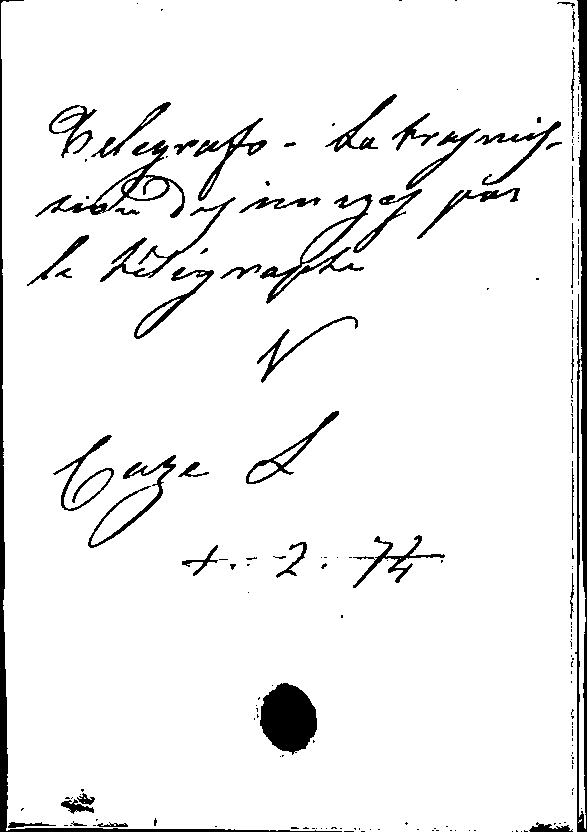 Telegrafo - La transmis-
sion des images par
le télégraphe
V
Caze L
+. - 2. 74